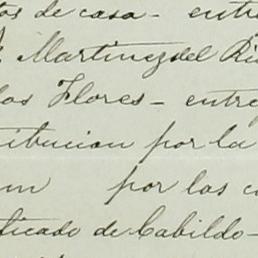 tos de casa - entre
Martinez del Ri
las Flores - entre
titucion por la
por las c
ficado de Cabildo -